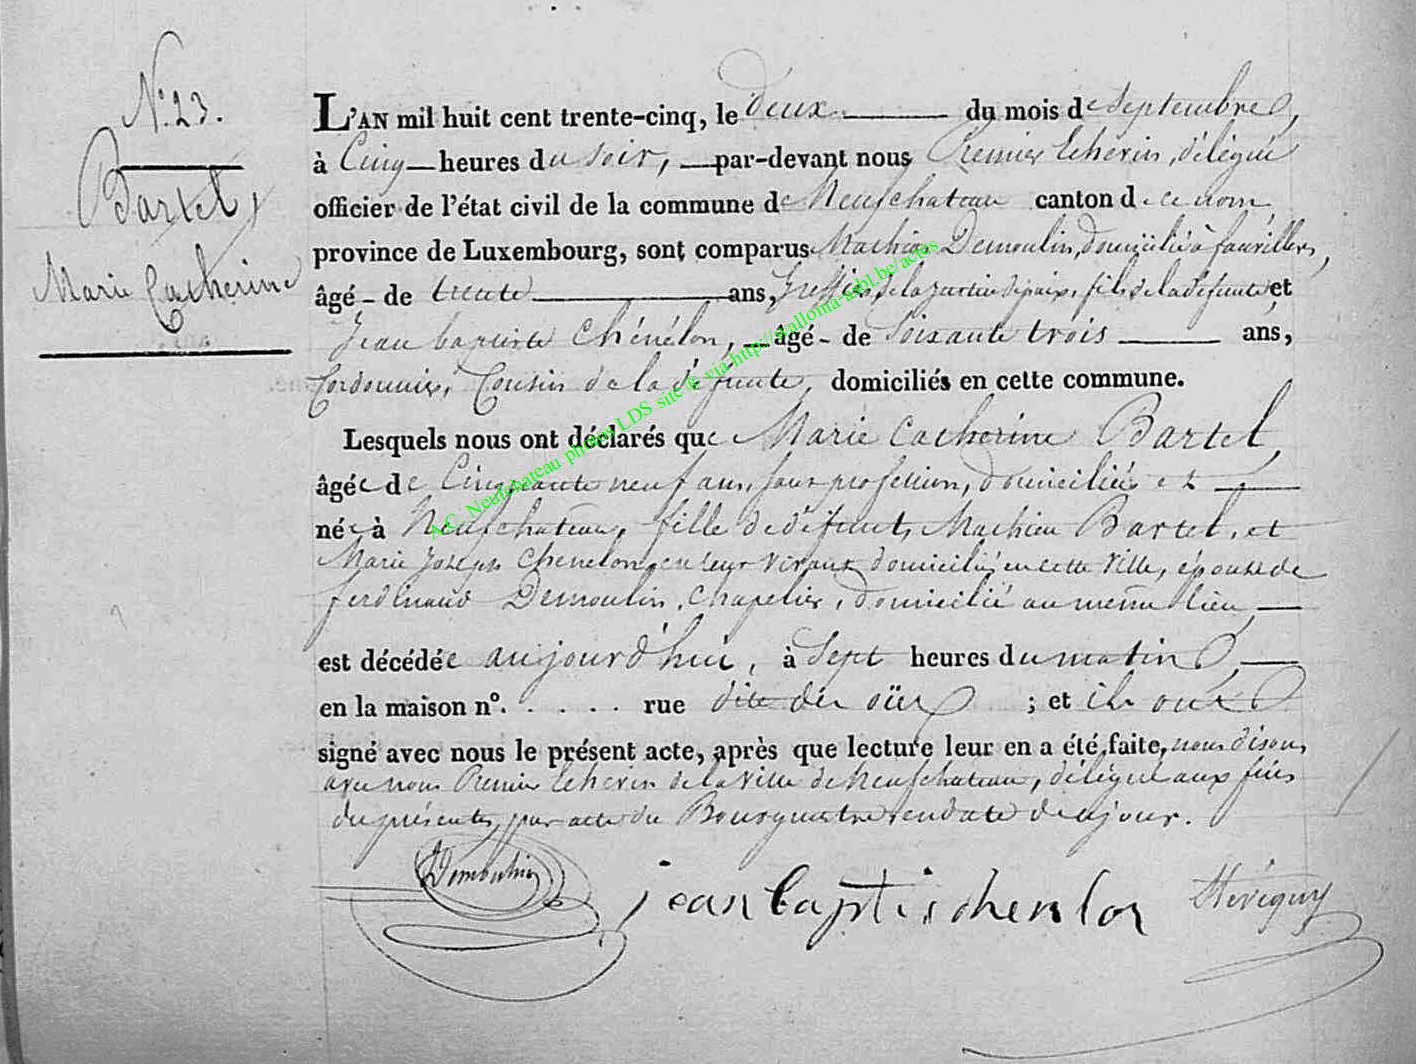 N.° 23.
Bartel,
Marie Catherine
L'AN mil huit cent trente-cinq, le deux du mois de Septembre,
à Cinq heures du soir, par-devant nous Premier Echevin, délégué
officier de l'état civil de la commune de Neufchateau canton de ce nom
province de Luxembourg, sont comparus Mathieu Demoulin, domicilié à fauvillers,
âgé de trente ans, Greffier de la justice de paix, fils de la défunte et
Jean baptiste Chénélon, âgé de Soixante trois ans,
Cordonnier, Cousin de la défunte, domiciliés en cette commune.
Lesquels nous ont déclarés que Marie Catherine Bartel,
âgée de Cinquante neuf ans, sans profession, domiciliée et
née à Neufchateau, fille de défunts Mathieu Bartel, et
Marie Joseph Chenelon, en leur vivant domiciliés en cette ville, épouse de
ferdinand Demoulin, Chapelier, domicilié au même lieu,
est décédée aujourd'hui, à Sept heures du matin,
en la maison n°. . . . . . rue dite ; et ils ont
signé avec nous le présent acte, après que lecture leur en a été faite, nous disons
avec nous Premier Echevin de la ville de Neufchateau, délégué aux fins
du présent, par acte du Bourgmestre en date de ce jour.
Demoulin
jean baptis chenlon
A.C. Neufchateau photos LDS site © via http://wallonia-asbl.be/actes